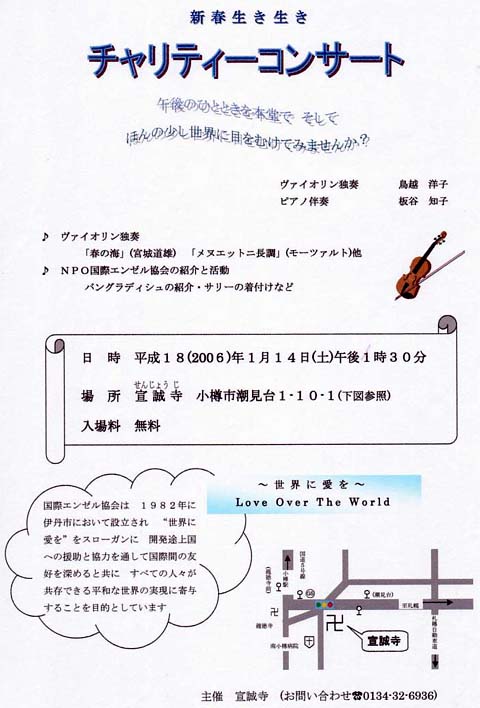 新春生き生き
チャリティーコンサート
午後のひとときを本堂で そして
ほんの少し世界に目をむけてみませんか？
ヴァイオリン独奏 鳥越 洋子
ピアノ伴奏 板谷 知子
♪ ヴァイオリン独奏
「春の海」(宮城道雄) 「メヌエットニ長調」(モーツァルト)他
♪ ＮＰＯ国際エンゼル協会の紹介と活動
バングラディシュの紹介・サリーの着付けなど
日 時 平成１８(2006)年１月１４日(土)午後１時３０分
せんじょうじ
場 所 宣誠寺 小樽市潮見台１-１０-１(下図参照)
入場料 無料
～世界に愛を～
Love Over The World
国際エンゼル協会は １９８２年に
伊丹市において設立され “世界に
愛を”をスローガンに 開発途上国
への援助と協力を通して国際間の友
好を深めると共に すべての人々が
共存できる平和な世界の実現に寄与
することを目的としています
国道５号線
小樽駅
GS
(潮見台)
至札幌
札幌自動車道
卍
卍
南小樽病院
宣誠寺
主催 宣誠寺 (お問い合わせ☎0134-32-6936)